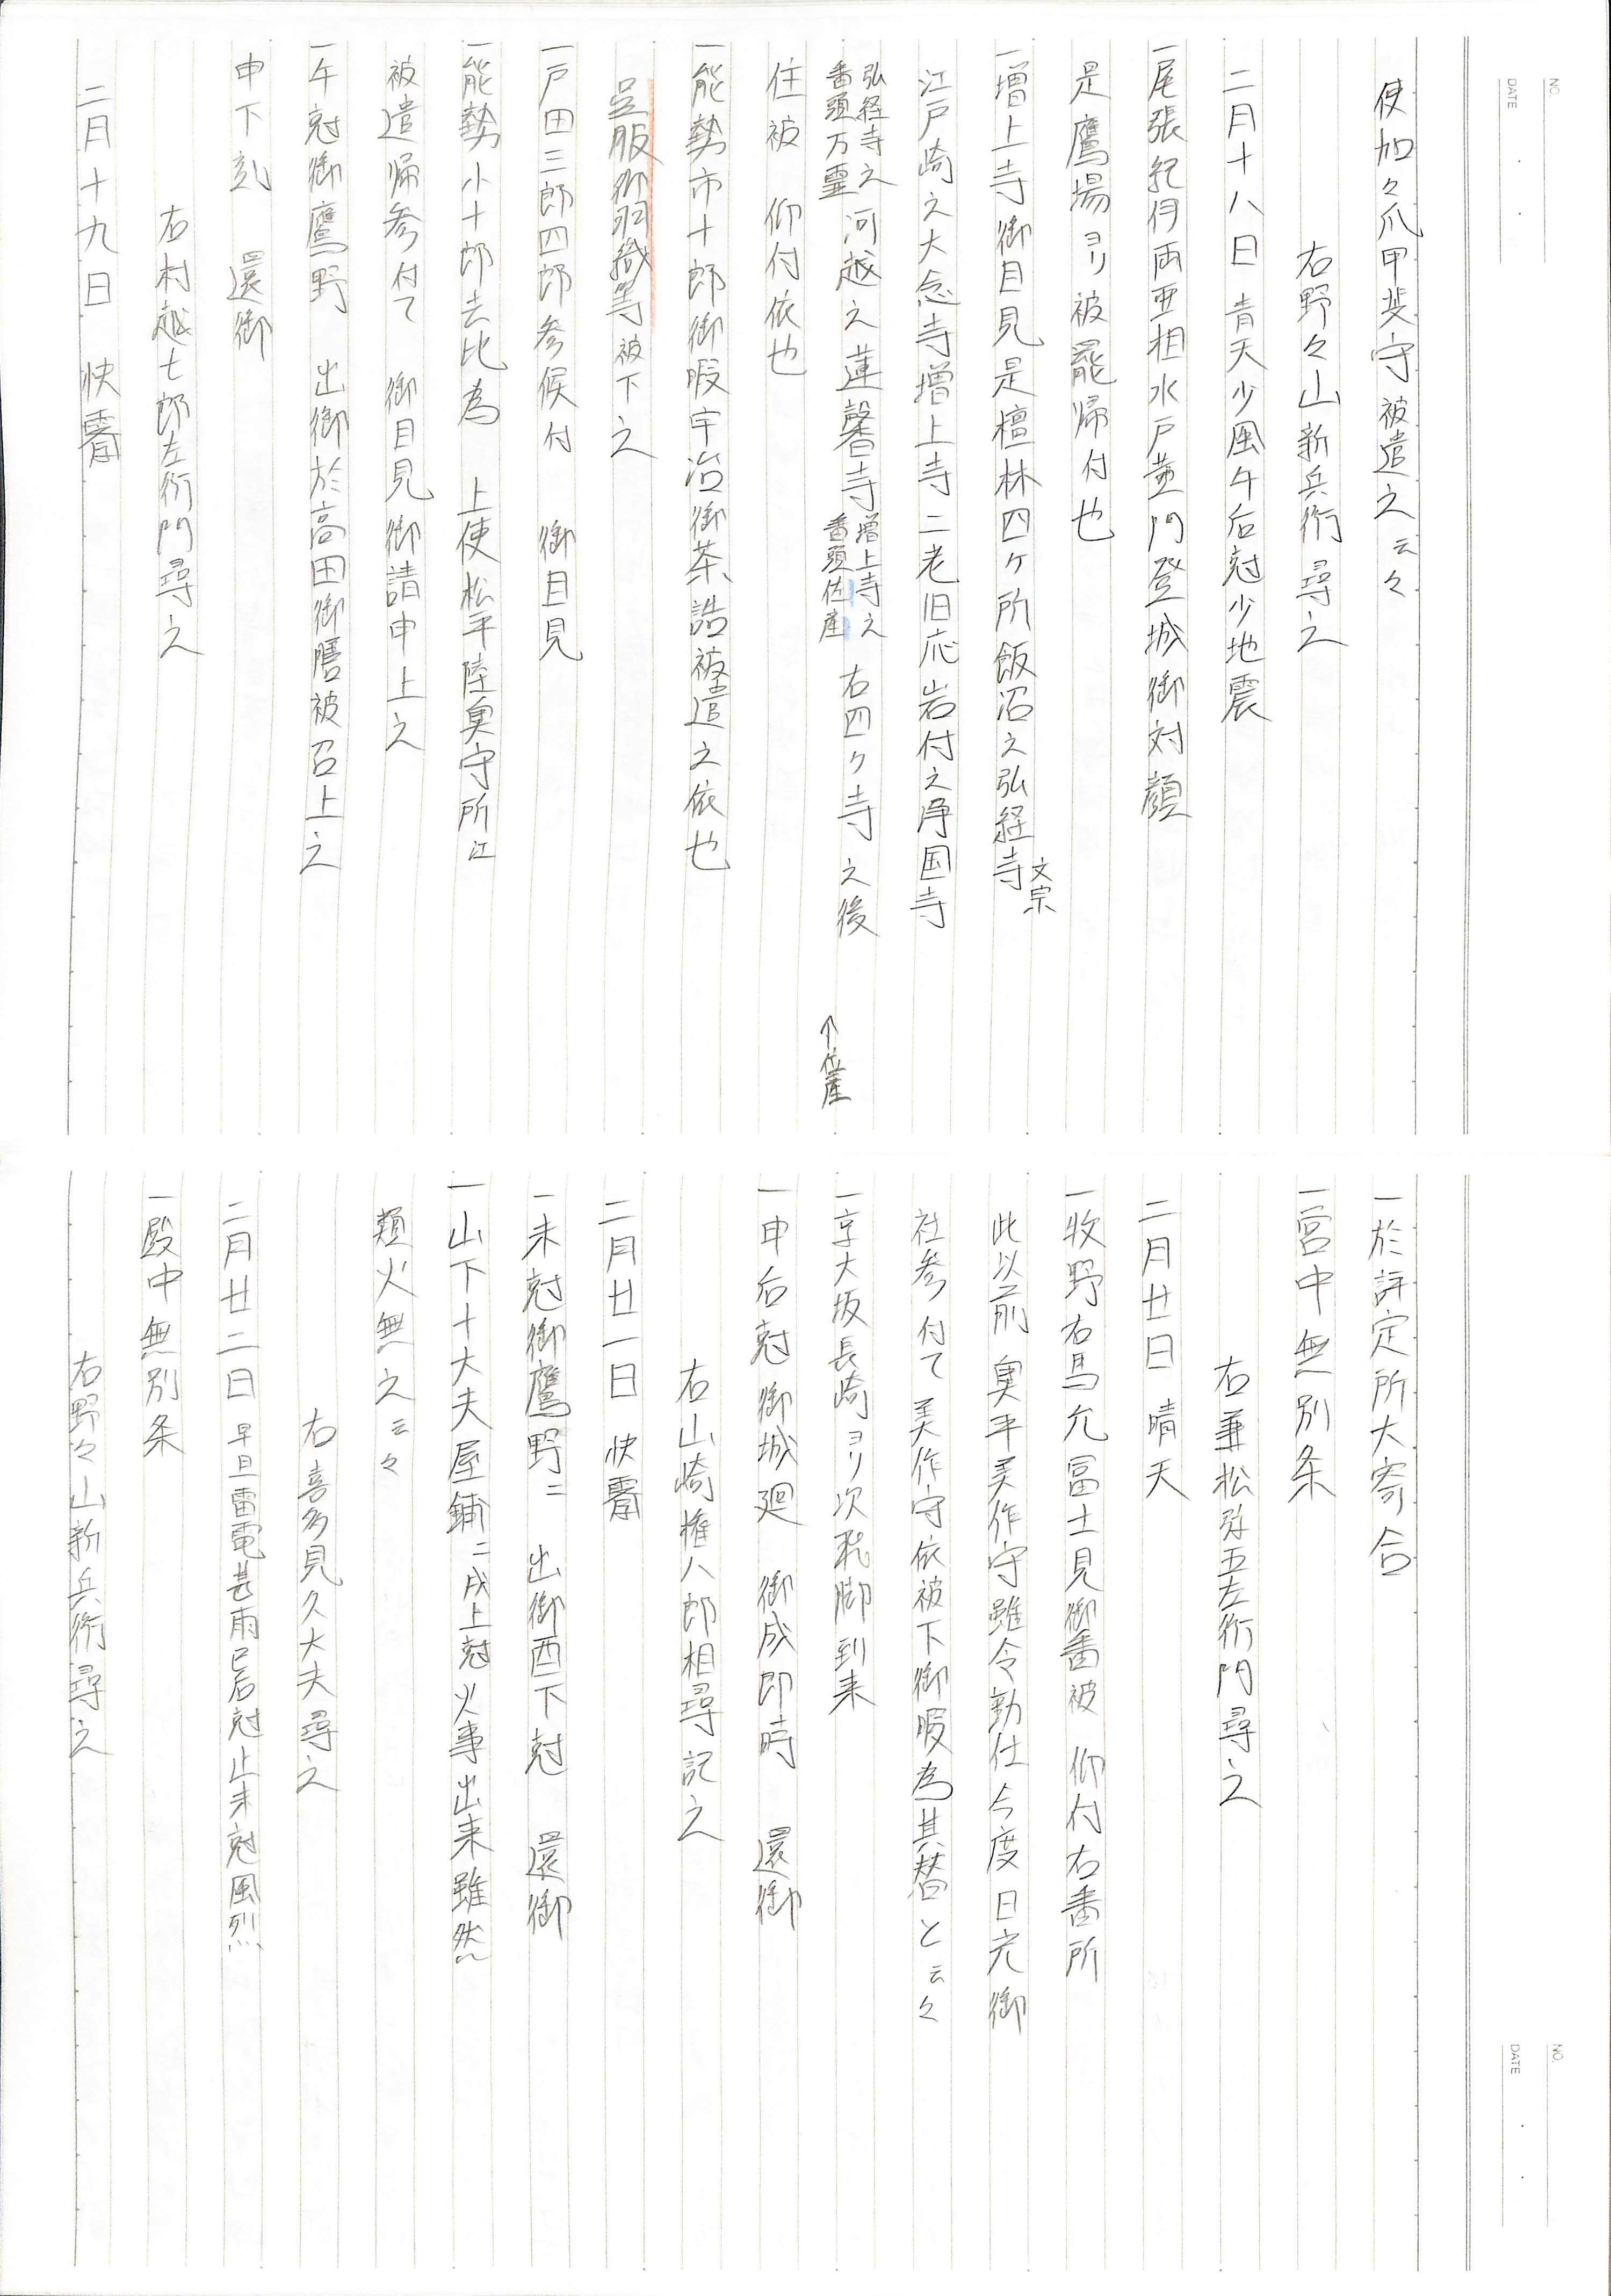 NO.
DATE
使加々爪甲斐守被遣之云々
右野々山新兵衛尋之
二月十八日 青天少風午后尅少地震
一尾張紀伊両亜相水戸黄門登城御対顔
是鷹場ヨリ被罷帰付也
一増上寺御目見是檀林四ケ所飯沼之弘経寺文宗
江戸崎之大念寺増上寺二老旧応岩付之浄国寺
弘経寺之番頭万霊 河越之蓮馨寺増上寺之番頭位産 右四ケ寺之後
↑位産
住被 仰付依也
一能勢市十郎御暇宇治御茶詰被遣之依也
呉服御羽織等被下之
一戸田三郎四郎参候付 御目見
一能勢小十郎去比為 上使松平陸奥守所江
被遣帰参付て 御目見御請申上之
一午尅御鷹野 出御於高田御膳被召上之
申下刻 還御
右村越七郎左衛門尋之
二月十九日 快霽
NO.
DATE
一於評定所大寄合
一宮中無別条
右兼松弥五左衛門尋之
二月廿日 晴天
一牧野右馬允冨士見御番被 仰付右番所
此以前奥平美作守雖令勤仕今度日光御
社参付て美作守依被下御暇為其替と云々
一京大坂長崎ヨリ次飛脚到来
一申后尅御城廻 御成即時 還御
右山崎権八郎相尋記之
二月廿一日 快霽
一未尅御鷹野ニ 出御酉下尅 還御
一山下十大夫屋鋪ニ戌上尅火事出来雖然
類火無之云々
右喜多見久大夫尋之
二月廿二日 早旦雷電甚雨巳后尅止未尅風烈
一殿中無別条
右野々山新兵衛尋之